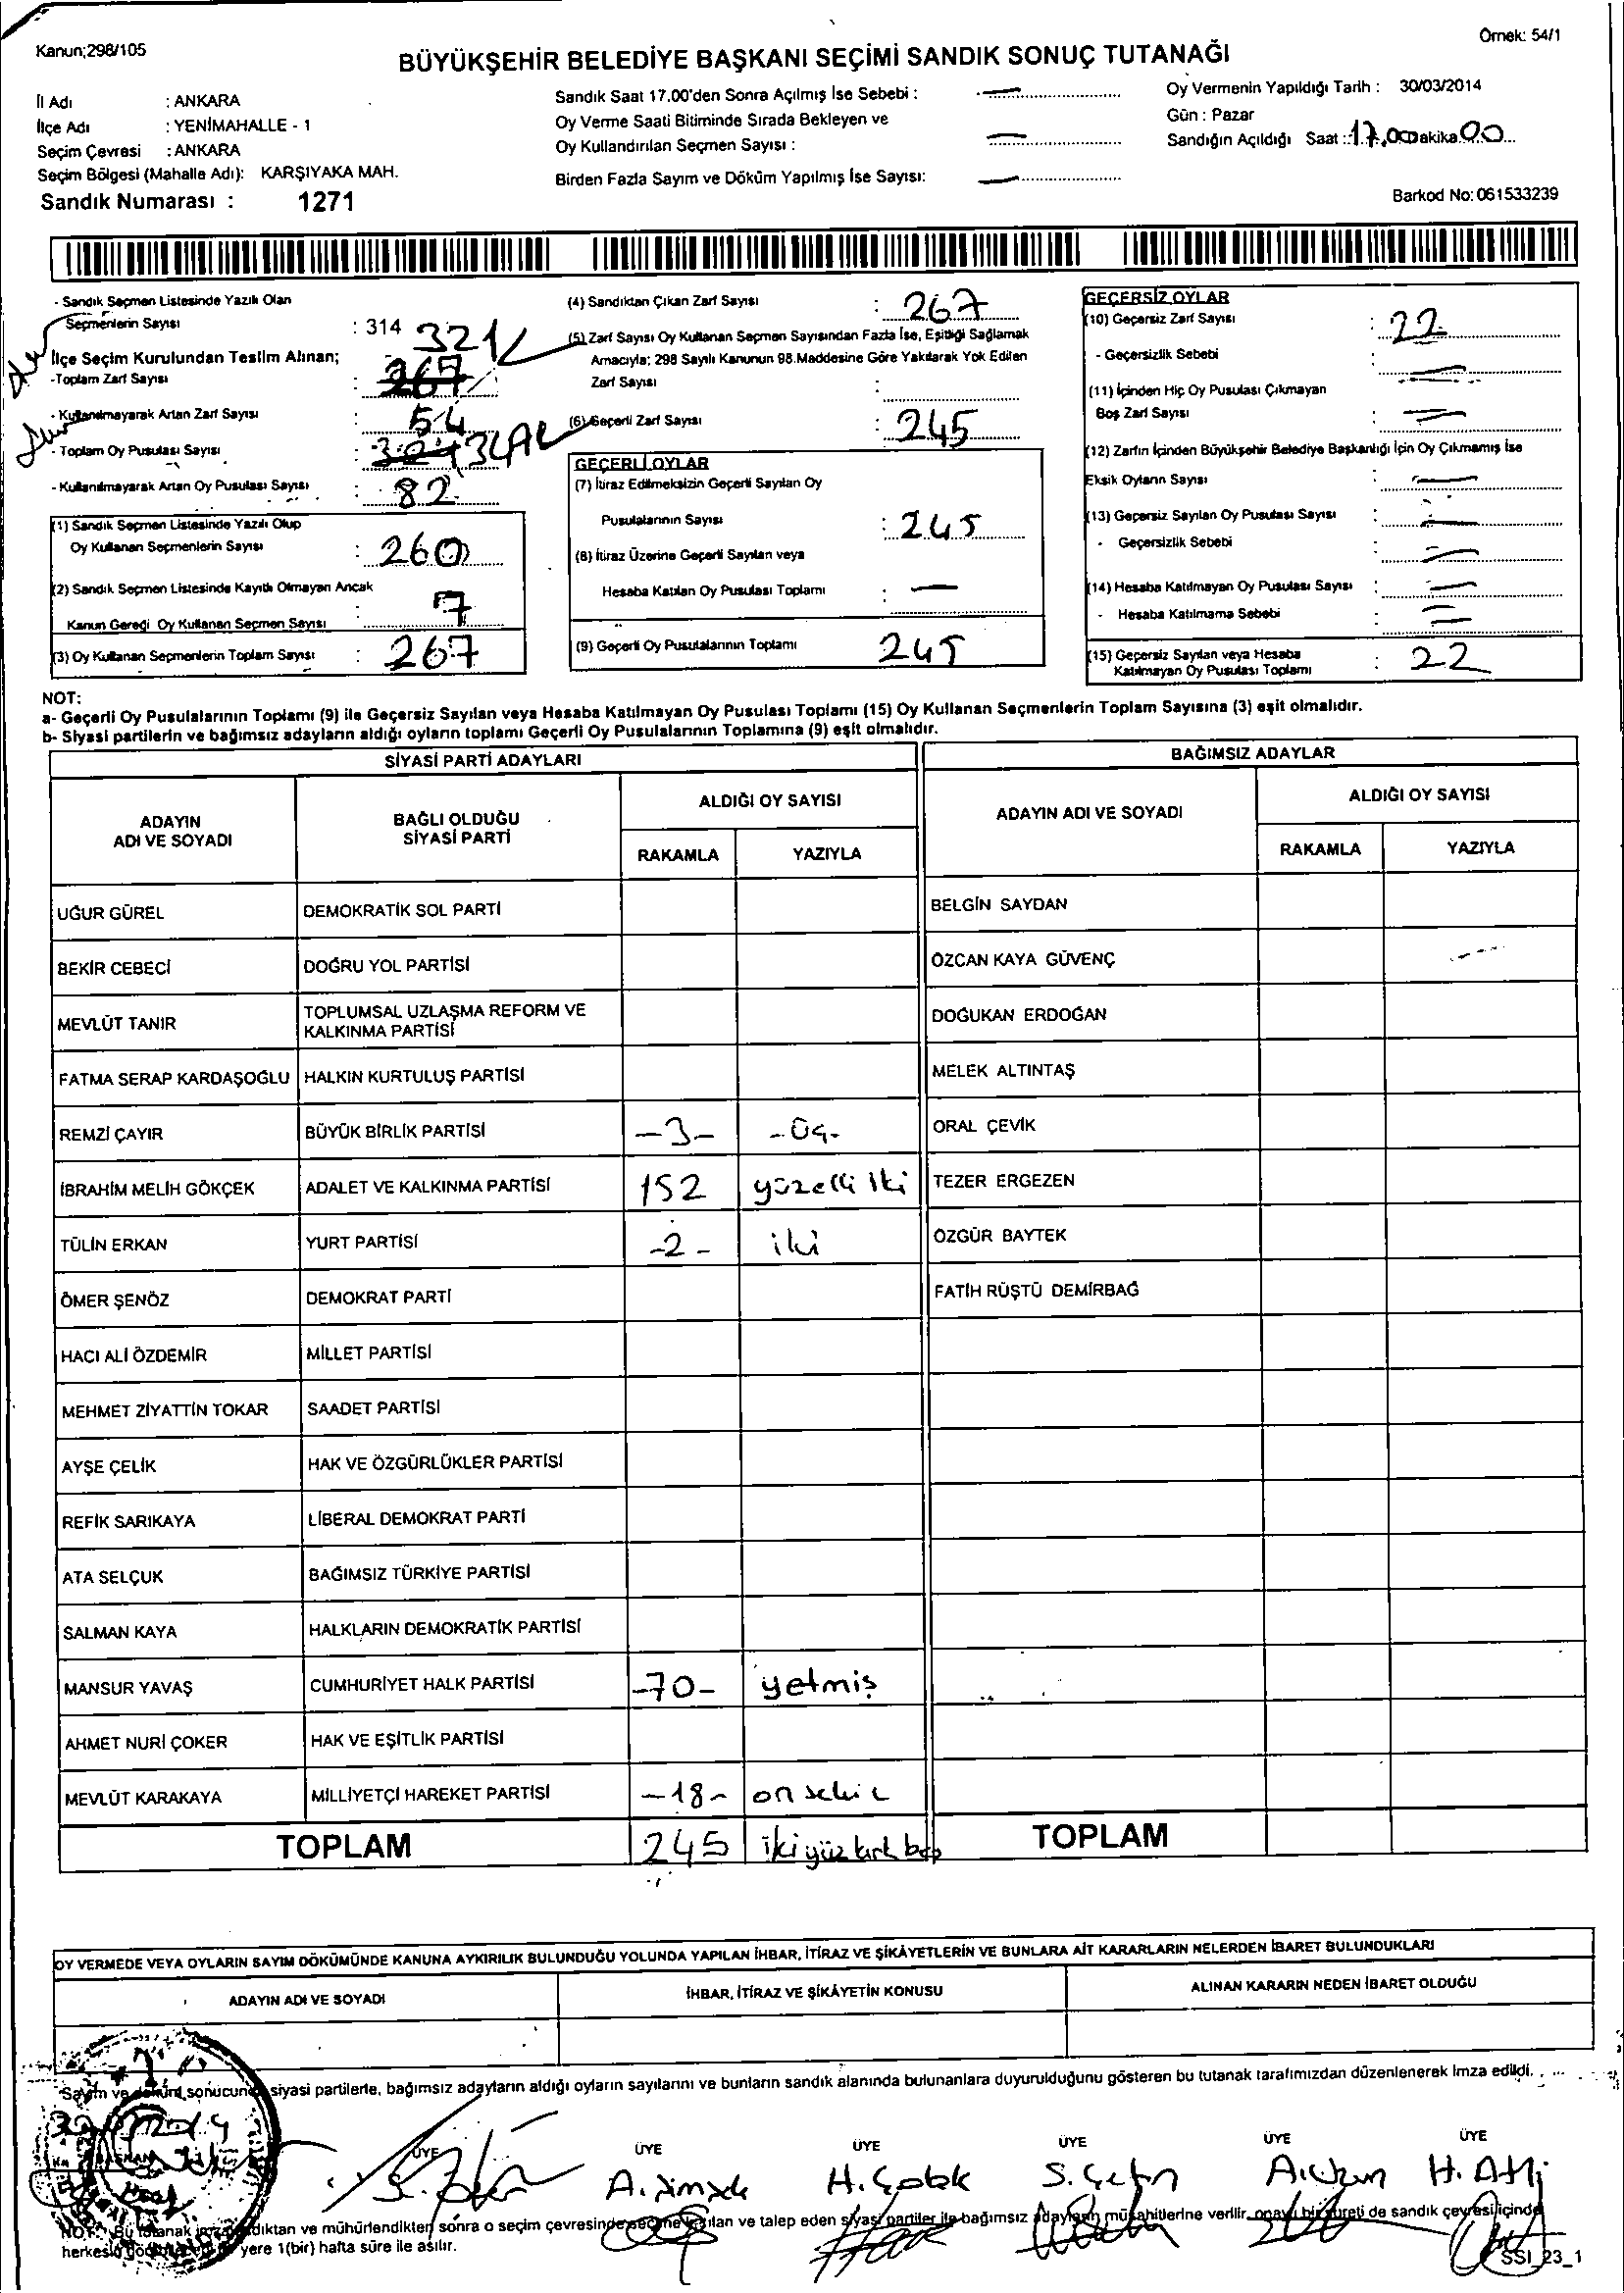 Kanun;298/105
Örnek: 54/1
BÜYÜKŞEHİR BELEDİYE BAŞKANI SEÇİMİ SANDIK SONUÇ TUTANAĞI
İl Adı : ANKARA
İlçe Adı : YENİMAHALLE - 1
Seçim Çevresi : ANKARA
Seçim Bölgesi (Mahalle Adı): KARŞIYAKA MAH.
Sandık Numarası : 1271
Sandık Saat 17.00'den Sonra Açılmış İse Sebebi :
Oy Verme Saati Bitiminde Sırada Bekleyen ve
Oy Kullandırılan Seçmen Sayısı :
Birden Fazla Sayım ve Döküm Yapılmış İse Sayısı:
Oy Vermenin Yapıldığı Tarih : 30/03/2014
Gün : Pazar
Sandığın Açıldığı Saat : 17.00 Dakika 00
Barkod No: 061533239
- Sandık Seçmen Listesinde Yazılı Olan
Seçmenlerin Sayısı : 314
321
İlçe Seçim Kurulundan Teslim Alınan;
-Toplam Zarf Sayısı : 267
- Kullanılmayarak Artan Zarf Sayısı : 54
- Toplam Oy Pusulası Sayısı :
- Kullanılmayarak Artan Oy Pusulası Sayısı : 82
(1) Sandık Seçmen Listesinde Yazılı Olup
Oy Kullanan Seçmenlerin Sayısı : 260
(2) Sandık Seçmen Listesinde Kayıtlı Olmayan Ancak
Kanun Gereği Oy Kullanan Seçmen Sayısı : 7
(3) Oy Kullanan Seçmenlerin Toplam Sayısı : 267
(4) Sandıktan Çıkan Zarf Sayısı : 267
(5) Zarf Sayısı Oy Kullanan Seçmen Sayısından Fazla İse, Eşitliği Sağlamak
Amacıyla; 298 Sayılı Kanunun 98.Maddesine Göre Yakılarak Yok Edilen
Zarf Sayısı :
(6) Geçerli Zarf Sayısı : 245
GEÇERLİ OYLAR
(7) İtiraz Edilmeksizin Geçerli Sayılan Oy
Pusulalarının Sayısı : 245
(8) İtiraz Üzerine Geçerli Sayılan veya
Hesaba Katılan Oy Pusulası Toplamı : —
(9) Geçerli Oy Pusulalarının Toplamı 245
GEÇERSİZ OYLAR
(10) Geçersiz Zarf Sayısı : 22
- Geçersizlik Sebebi :
(11) İçinden Hiç Oy Pusulası Çıkmayan
Boş Zarf Sayısı :
(12) Zarfın İçinden Büyükşehir Belediye Başkanlığı İçin Oy Çıkmamış İse
Eksik Oyların Sayısı :
(13) Geçersiz Sayılan Oy Pusulası Sayısı :
- Geçersizlik Sebebi :
(14) Hesaba Katılmayan Oy Pusulası Sayısı :
- Hesaba Katılmama Sebebi :
(15) Geçersiz Sayılan veya Hesaba
Katılmayan Oy Pusulası Toplamı : 22
NOT:
a- Geçerli Oy Pusulalarının Toplamı (9) ile Geçersiz Sayılan veya Hesaba Katılmayan Oy Pusulası Toplamı (15) Oy Kullanan Seçmenlerin Toplam Sayısına (3) eşit olmalıdır.
b- Siyasi partilerin ve bağımsız adayların aldığı oyların toplamı Geçerli Oy Pusulalarının Toplamına (9) eşit olmalıdır.
SİYASİ PARTİ ADAYLARI
ADAYIN
ADI VE SOYADI
BAĞLI OLDUĞU
SİYASİ PARTİ
ALDIĞI OY SAYISI
RAKAMLA YAZIYLA
UĞUR GÜREL DEMOKRATİK SOL PARTİ
BEKİR CEBECİ DOĞRU YOL PARTİSİ
MEVLÜT TANIR TOPLUMSAL UZLAŞMA REFORM VE
KALKINMA PARTİSİ
FATMA SERAP KARDAŞOĞLU HALKIN KURTULUŞ PARTİSİ
REMZİ ÇAYIR BÜYÜK BİRLİK PARTİSİ -3- -Üç-
İBRAHİM MELİH GÖKÇEK ADALET VE KALKINMA PARTİSİ 152 yüzelli iki
TÜLİN ERKAN YURT PARTİSİ -2- iki
ÖMER ŞENÖZ DEMOKRAT PARTİ
HACI ALİ ÖZDEMİR MİLLET PARTİSİ
MEHMET ZİYATTİN TOKAR SAADET PARTİSİ
AYŞE ÇELİK HAK VE ÖZGÜRLÜKLER PARTİSİ
REFİK SARIKAYA LİBERAL DEMOKRAT PARTİ
ATA SELÇUK BAĞIMSIZ TÜRKİYE PARTİSİ
SALMAN KAYA HALKLARIN DEMOKRATİK PARTİSİ
MANSUR YAVAŞ CUMHURİYET HALK PARTİSİ -70- yetmiş
AHMET NURİ ÇOKER HAK VE EŞİTLİK PARTİSİ
MEVLÜT KARAKAYA MİLLİYETÇİ HAREKET PARTİSİ -18- on sekiz
TOPLAM 245 ikiyüz kırk beş
BAĞIMSIZ ADAYLAR
ADAYIN ADI VE SOYADI
ALDIĞI OY SAYISI
RAKAMLA YAZIYLA
BELGİN SAYDAN
ÖZCAN KAYA GÜVENÇ
DOĞUKAN ERDOĞAN
MELEK ALTINTAŞ
ORAL ÇEVİK
TEZER ERGEZEN
ÖZGÜR BAYTEK
FATİH RÜŞTÜ DEMİRBAĞ
TOPLAM
OY VERMEDE VEYA OYLARIN SAYIM DÖKÜMÜNDE KANUNA AYKIRILIK BULUNDUĞU YOLUNDA YAPILAN İHBAR, İTİRAZ VE ŞİKÂYETLERİN VE BUNLARA AİT KARARLARIN NELERDEN İBARET BULUNDUKLARI
ADAYIN ADI VE SOYADI İHBAR, İTİRAZ VE ŞİKÂYETİN KONUSU ALINAN KARARIN NEDEN İBARET OLDUĞU
Sayım ve döküm sonucunda siyasi partilerle, bağımsız adayların aldığı oyların sayılarını ve bunların sandık alanında bulunanlara duyurulduğunu gösteren bu tutanak tarafımızdan düzenlenerek imza edildi.
BAŞKAN ÜYE ÜYE ÜYE ÜYE ÜYE ÜYE
A. Şimşek H. Çolak S. Çetin A. Uzun H. Atlı
NOT: Bu tutanak imzalandıktan ve mühürlendikten sonra o seçim çevresinde seçime katılan ve talep eden siyasi partiler ile bağımsız adayların müşahitlerine verilir, onaylı bir sureti de sandık çevresi içinde
yere 1(bir) hafta süre ile asılır.
SSI_23_1